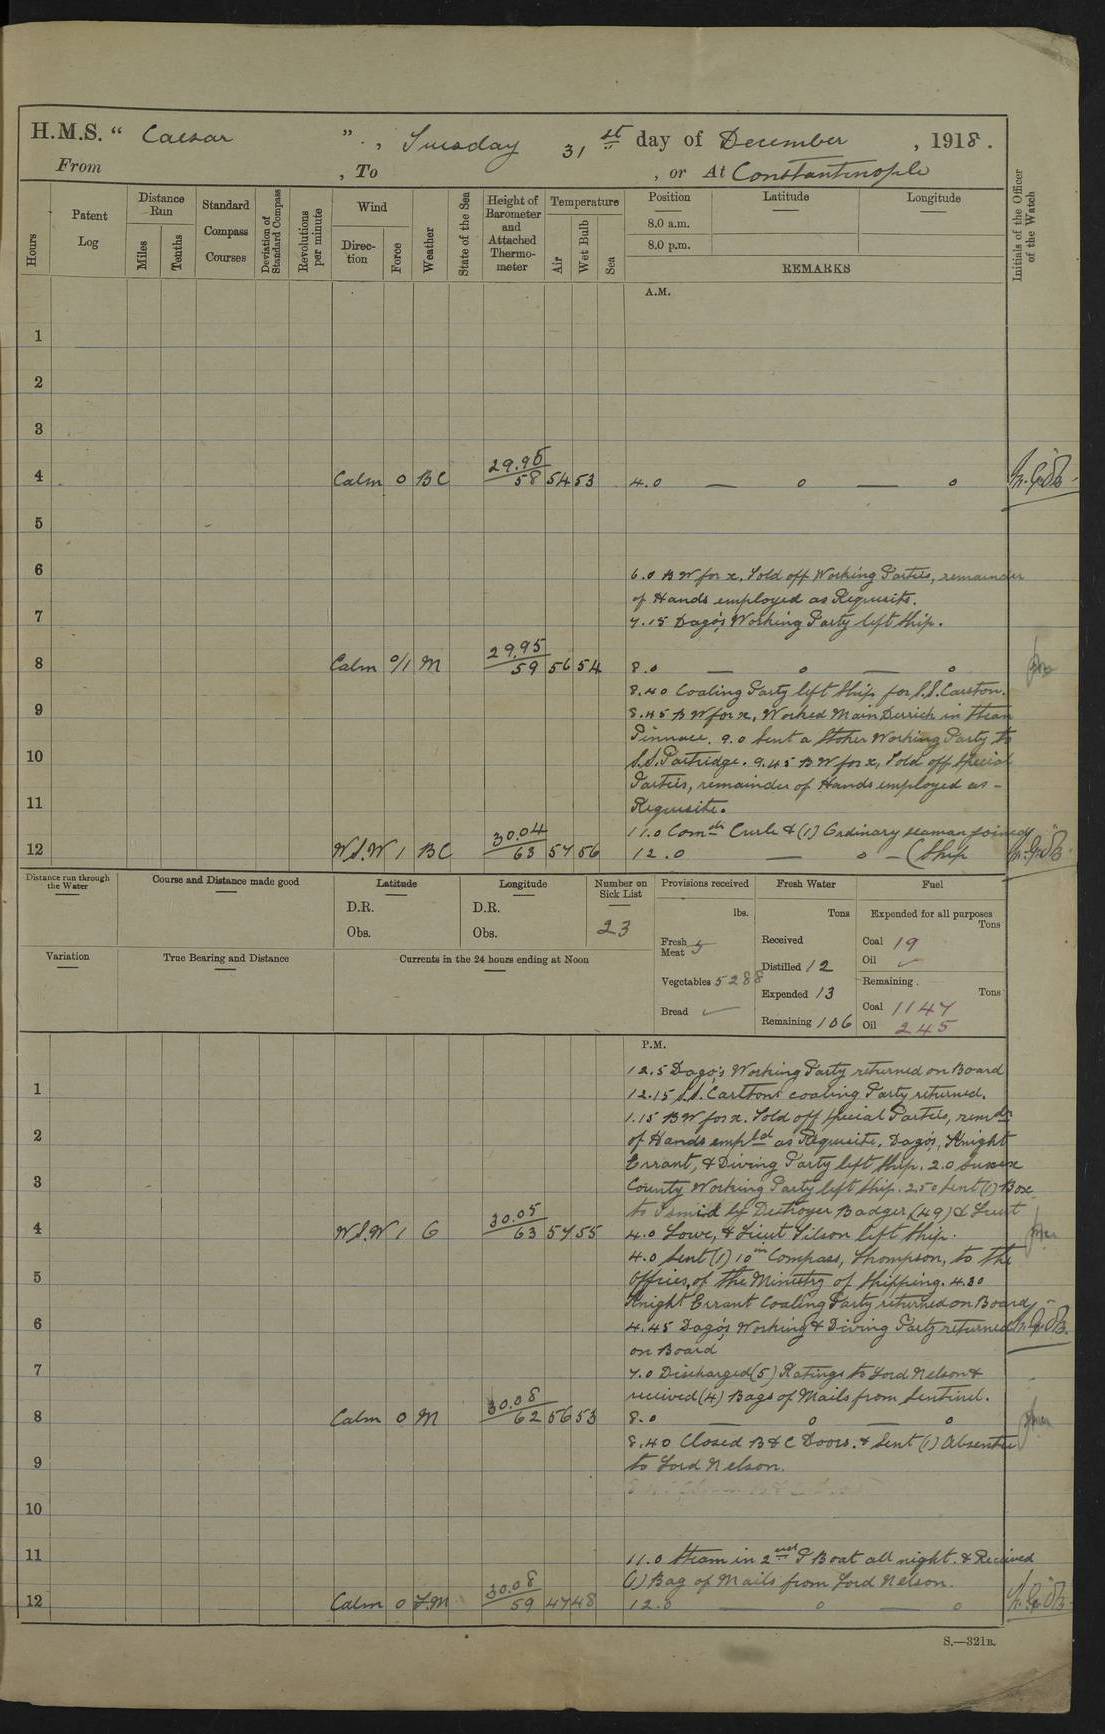 H.M.S. " Caesar ", Tuesday 31st day of December, 1918.
From , To , or At Constantinople
Hours
Patent Log
Distance Run
Miles
Tenths
Standard Compass Courses
Deviation of Standard Compass
Revolutions per minute
Wind
Direction
Force
Weather
State of the Sea
Height of Barometer and Attached Thermometer
Temperature
Air
Wet Bulb
Sea
Position
Latitude
Longitude
8.0 a.m.
8.0 p.m.
REMARKS
Initials of the Officer of the Watch
A.M.
1
2
3
4 Calm 0 BC 29.95 58 54 53 4.0 — 0 — 0
5
6
6.0 B W for x. Told off Working Parties, remainder
of Hands employed as Requisite.
7
7.15 Dago's Working Party left ship.
8 Calm 0/1 M 29.95 59 56 54 8.0 — 0 — 0
8.40 Coaling Party left Ship for S.S. Carlton.
9
8.45 B W for x, Worked Main Derrick in Steam
Pinnace. 9.0 Sent a Stoker Working Party to
10
S.S. Partridge. 9.45 B W for x, Told off Special
Parties, remainder of Hands employed as -
11
Requisite.
11.0 Comdr Curle & (1) Ordinary seaman joined
12 W.S.W 1 BC 30.04 63 57 56 12.0 — 0 — (Ship
Distance run through the Water
Course and Distance made good
Latitude
D.R.
Obs.
Longitude
D.R.
Obs.
Number on Sick List
23
Provisions received
lbs.
Fresh Meat 5
Vegetables 5288
Bread ✓
Fresh Water
Tons
Received
Distilled 12
Expended 13
Remaining 106
Fuel
Expended for all purposes
Tons
Coal 19
Oil ✓
Remaining.
Tons
Coal 1147
Oil 245
Variation
True Bearing and Distance
Currents in the 24 hours ending at Noon
P.M.
12.5 Dago's Working Party returned on Board
1
12.15 S.S. Carltons coaling Party returned.
1.15 B W for x. Told off special Parties, remdr
2
of Hands empld as Requisite. Dago's, Knight
Errant, & Diving Party left Ship. 2.0 Sussex
3
County Working Party left ship. 2.50 Sent (1) Box
to Ismid by Destroyer Badger (49) & Lieut
4 W.S.W 1 C 30.05 63 57 55 4.0 Lowe, & Lieut Tilson left Ship.
4.0 Sent (1) 10in Compass, Thompson, to the
5
Offices of the Ministry of Shipping. 4.30
Knight Errant Coaling Party returned on Board
6
4.45 Dago's Working & Diving Party returned
on Board
7
7.0 Discharged (5) Ratings to Lord Nelson &
received (4) Bags of Mails from Sentinel.
8 Calm 0 M 30.08 62 56 53 8.0 — 0 — 0
8.40 Closed B & C Doors. & Sent (1) Absentee
9
to Lord Nelson.
10
11
11.0 Steam in 2nd P Boat all night. & Received
(1) Bag of Mails from Lord Nelson.
12 Calm 0 F.M 30.08 59 47 48 12.0 — 0 — 0
S.—321B.